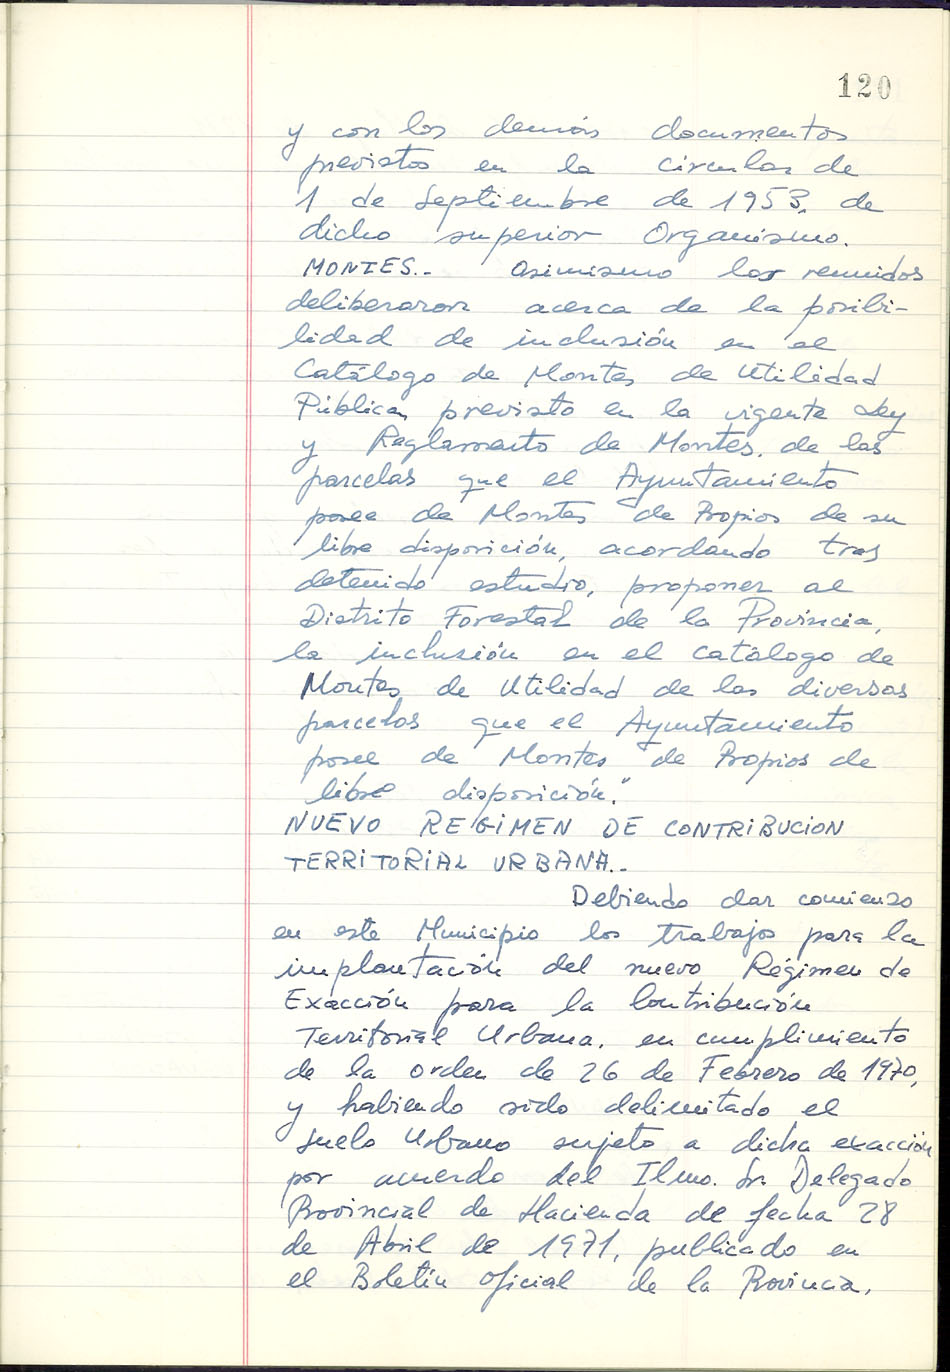 120
y con los demás documentos
previstos en la circular de
1 de Septiembre de 1953, de
dicho superior Organismo.
MONTES.- Asimismo los reunidos
deliberaron acerca de la posibi-
lidad de inclusión en el
Catálogo de Montes de Utilidad
Pública, previsto en la vigente Ley
y Reglamento de Montes, de las
parcelas que el Ayuntamiento
posee de Montes de Propios de su
libre disposición, acordando tras
detenido estudio, proponer al
Distrito Forestal de la Provincia,
la inclusión en el catálogo de
Montes de Utilidad de las diversas
parcelas que el Ayuntamiento
posee de Montes de Propios de
libre disposición."
NUEVO REGIMEN DE CONTRIBUCION
TERRITORIAL URBANA.-
Debiendo dar comienzo
en este Municipio los trabajos para la
implantación del nuevo Régimen de
Exacción para la Contribución
Territorial Urbana, en cumplimiento
de la orden de 26 de Febrero de 1970,
y habiendo sido delimitado el
Suelo Urbano sujeto a dicha exacción
por acuerdo del Ilmo. Sr. Delegado
Provincial de Hacienda de fecha 28
de Abril de 1971, publicado en
el Boletín Oficial de la Provincia,